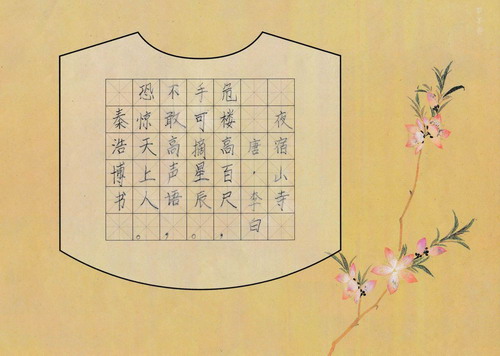 夜宿山寺
唐·李白
危楼高百尺，
手可摘星辰。
不敢高声语，
恐惊天上人。
秦浩博书